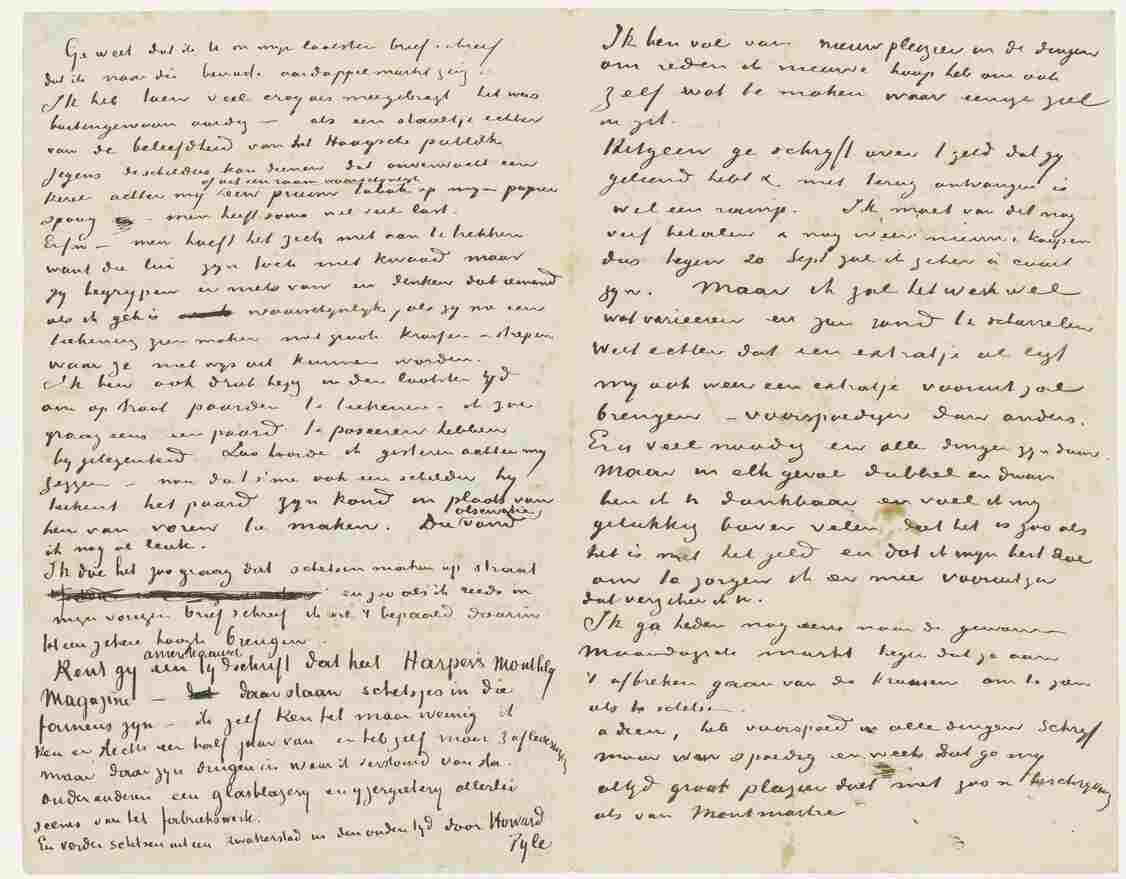 Ge weet dat ik U in mijn laatsten brief schreef
dat ik naar die bewuste aardappelmarkt ging.
Ik heb toen veel croquis meegebragt het was
buitengewoon aardig – als een staaltje echter
van de beleefdheid van het Haagsche publiek
jegens de schilders kan dienen dat onverwacht een
kerel achter mij of uit een raam waarschijnlijk een pruim tabak op mijn papier
spoog – men heeft soms wel veel last.
Enfin – men hoeft het zich niet aan te trekken
want die lui zijn toch niet kwaad maar
zij begrijpen er niets van en denken dat iemand
als ik gek is waarschijnlijk, als zij me een
teekening zien maken met groote krassen & strepen
waar ze niet wijs uit kunnen worden.
Ik ben ook druk bezig in den laatsten tijd
om op straat paarden te teekenen. ik zou
graag eens een paard te poseeren hebben
bij gelegenheid. Zoo hoorde ik gisteren achter mij
zeggen – nou dat's me ook een schilder hij
teekent het paard zijn kond in plaats van
hem van voren te maken. Die observatie vond
ik nog al leuk.
Ik doe het zoo graag dat schetsen maken op straat
en zoo als ik reeds in
mijn vorigen brief schreef ik wil 't bepaald daarin
tot een zekere hoogte brengen.
Kent gij een amerikaansch tijdschrift dat heet Harper's Monthly
Magazine – daar staan schetsjes in die
fameus zijn – ik zelf ken het maar weinig ik
ken er slechts een half jaar van en heb zelf maar 3 afleveringen
maar daar zijn dingen in waar ik verstomd van sta.
onder anderen een glasblazerij en ijzergieterij allerlei
scenes van het fabriekswerk.
En verder schetsen uit een kwakerstad in den ouden tijd door Howard
Pyle
Ik ben vol van nieuw pleizier in de dingen
om reden ik nieuwe hoop heb om ook
zelf wat te maken waar eenige ziel
in zit.
Hetgeen ge schrijft over 't geld dat gij
geleend hebt & niet terug ontvangen is
wel een ruïnetje. Ik moet van dit nog
verf betalen & nog weer nieuwe koopen
dus tegen 20 Sept zal ik zeker à court
zijn. Maar ik zal het werk wel
wat varieeren en zien rond te scharrelen
Weet echter dat een extratje al ligt
mij ook weer een extratje vooruit zal
brengen – voorspoediger dan anders.
Er is veel noodig en alle dingen zijn duur.
Maar in elk geval dubbel en dwars
ben ik U dankbaar en voel ik mij
gelukkig boven velen dat het is zoo als
het is met het geld en dat ik mijn best doe
om te zorgen ik er mee vooruitga
dat verzeker ik U.
Ik ga heden nog eens naar de gewone
Maandagsche markt tegen dat ze aan
't afbreken gaan van de kramen om te zien
iets te schetsen.
adieu, heb voorspoed in alle dingen Schrijf
maar weer spoedig en weet dat ge mij
altijd groot pleizier doet met zoo'n beschrijving
als van Montmartre